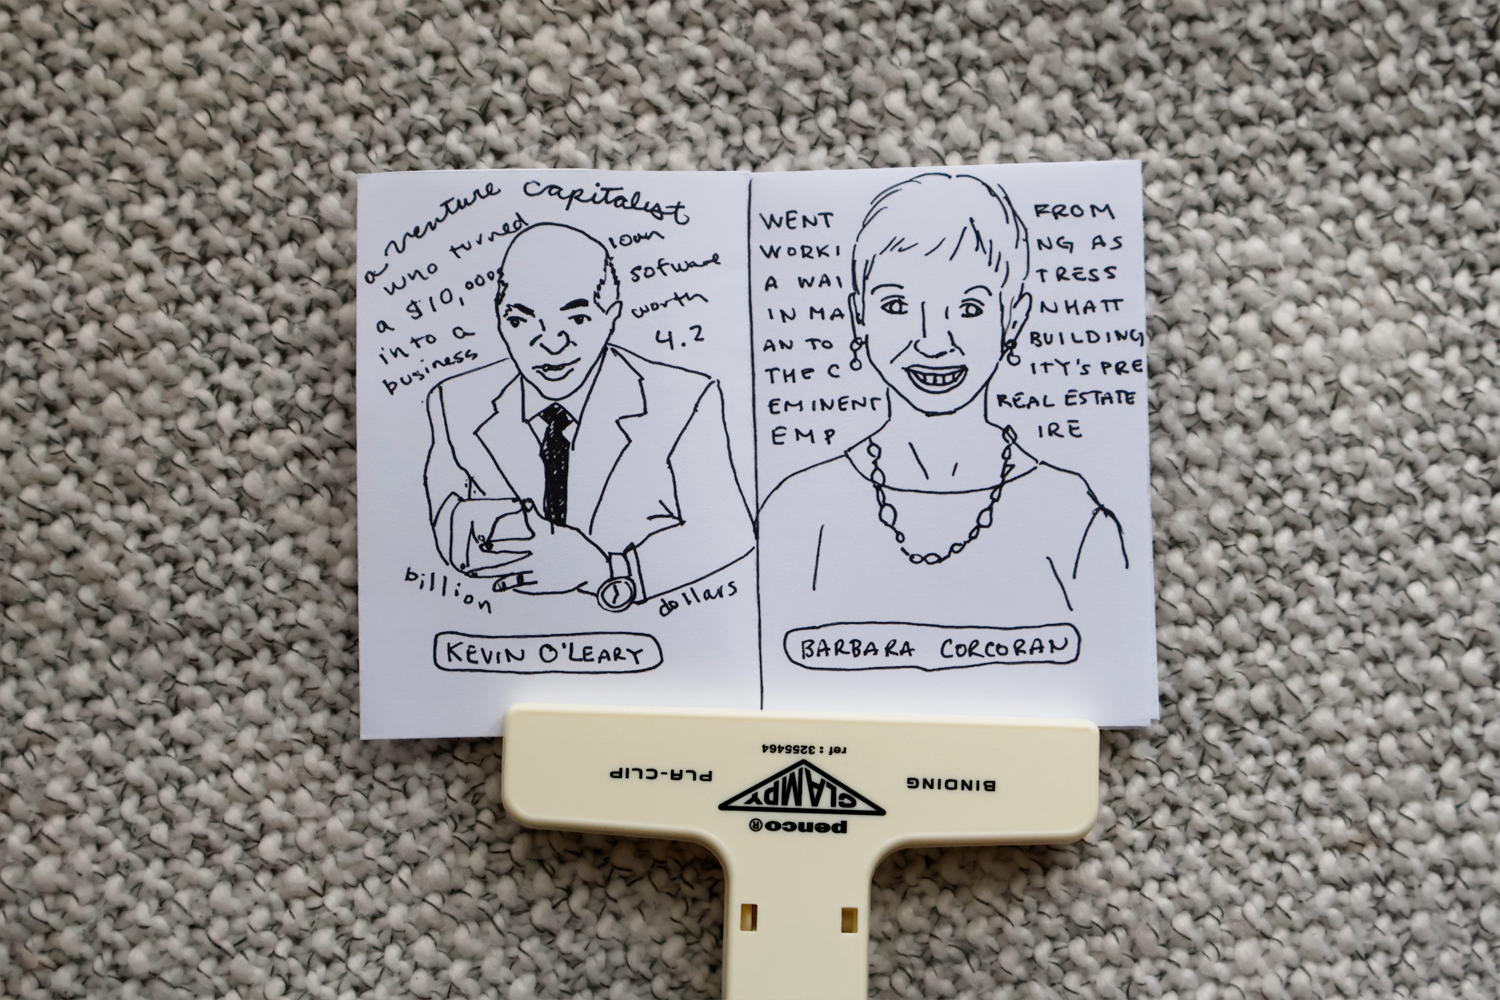 a venture capitalist
who turned
a $10,000 loan
into a sofware
business worth
4.2
billion dollars
KEVIN O'LEARY
WENT FROM
WORKING AS
A WAITRESS
IN MANHATT
AN TO BUILDING
THE CITY'S PRE
EMINENT REAL ESTATE
EMPIRE
BARBARA CORCORAN
ref : 3255464
BINDING CLAMPY PLA-CLIP
penco®